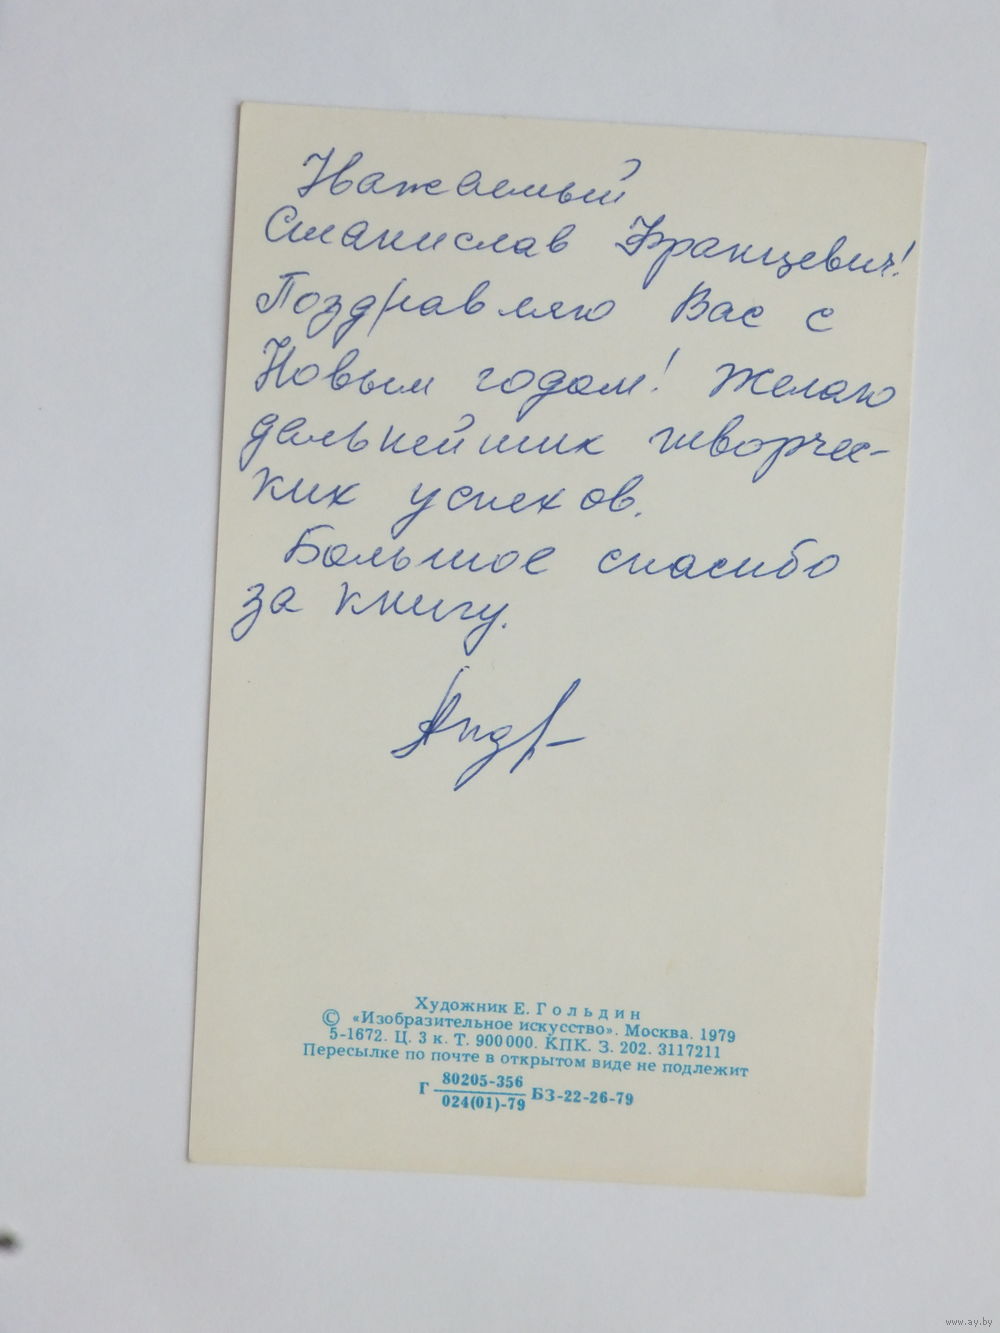 Уважаемый
Станислав Францевич!
Поздравляю Вас с
Новым годом! Желаю
дальнейших творчес-
ких успехов.
Большое спасибо
за книгу.
Художник Е. Гольдин
© «Изобразительное искусство». Москва. 1979
5-1672. Ц. 3 к. Т. 900000. КПК. З. 202. 3117211
Пересылке по почте в открытом виде не подлежит
Г 80205-356 БЗ-22-26-79
024(01)-79
www.ay.by